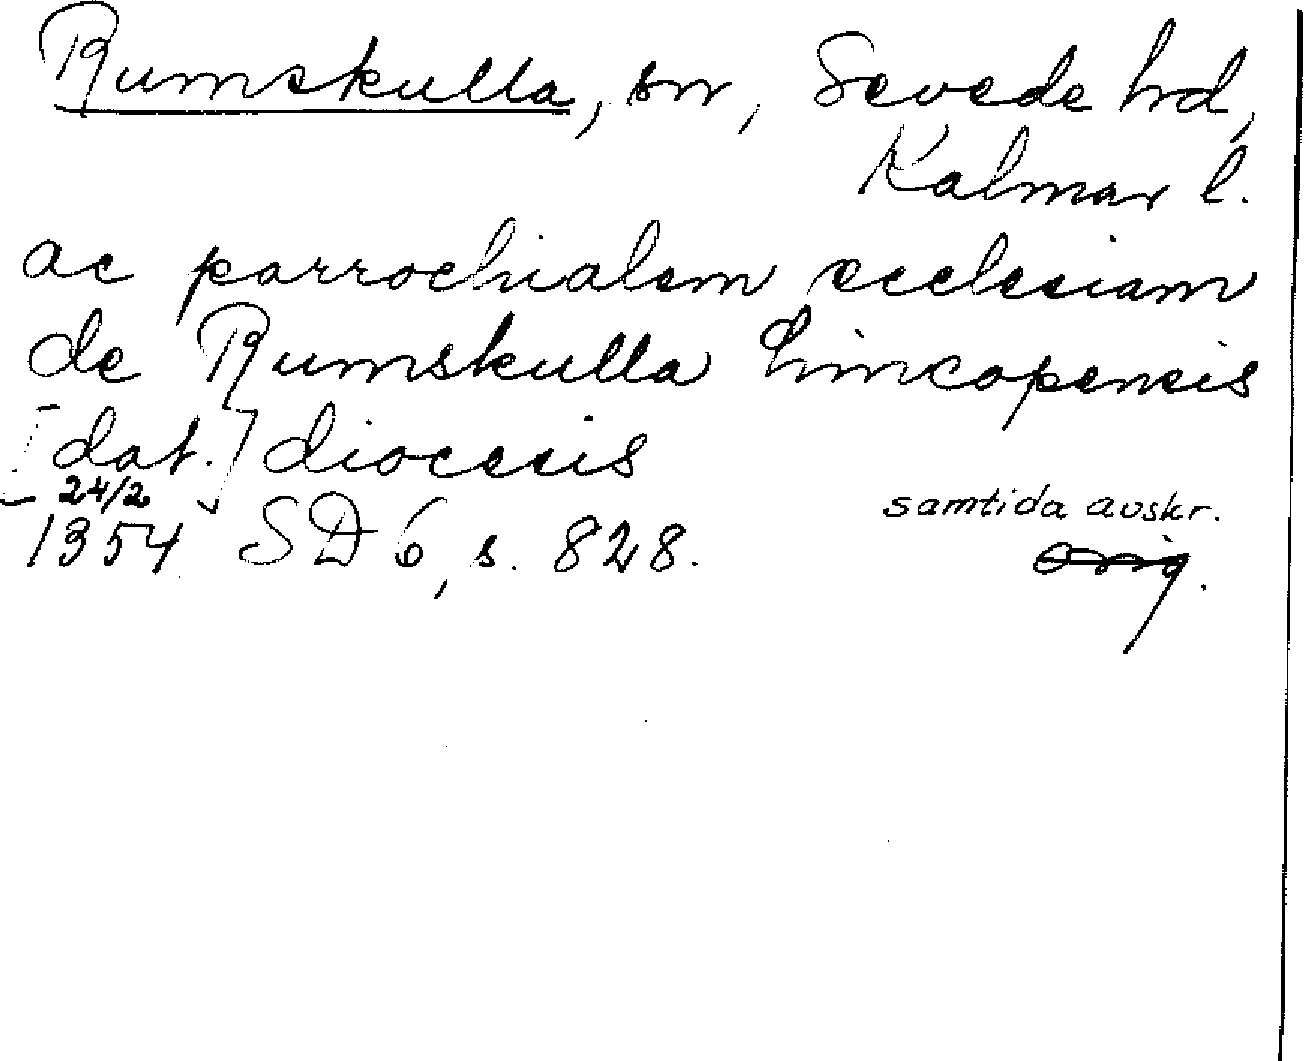 Rumskulla, sn, Sevede hd,
Kalmar l.
ac parrochialem ecclesiam
de Rumskulla Lincopensis
[dat.] diocesis
24/2
1354 SD 6, s. 828.
samtida avskr.
orig.